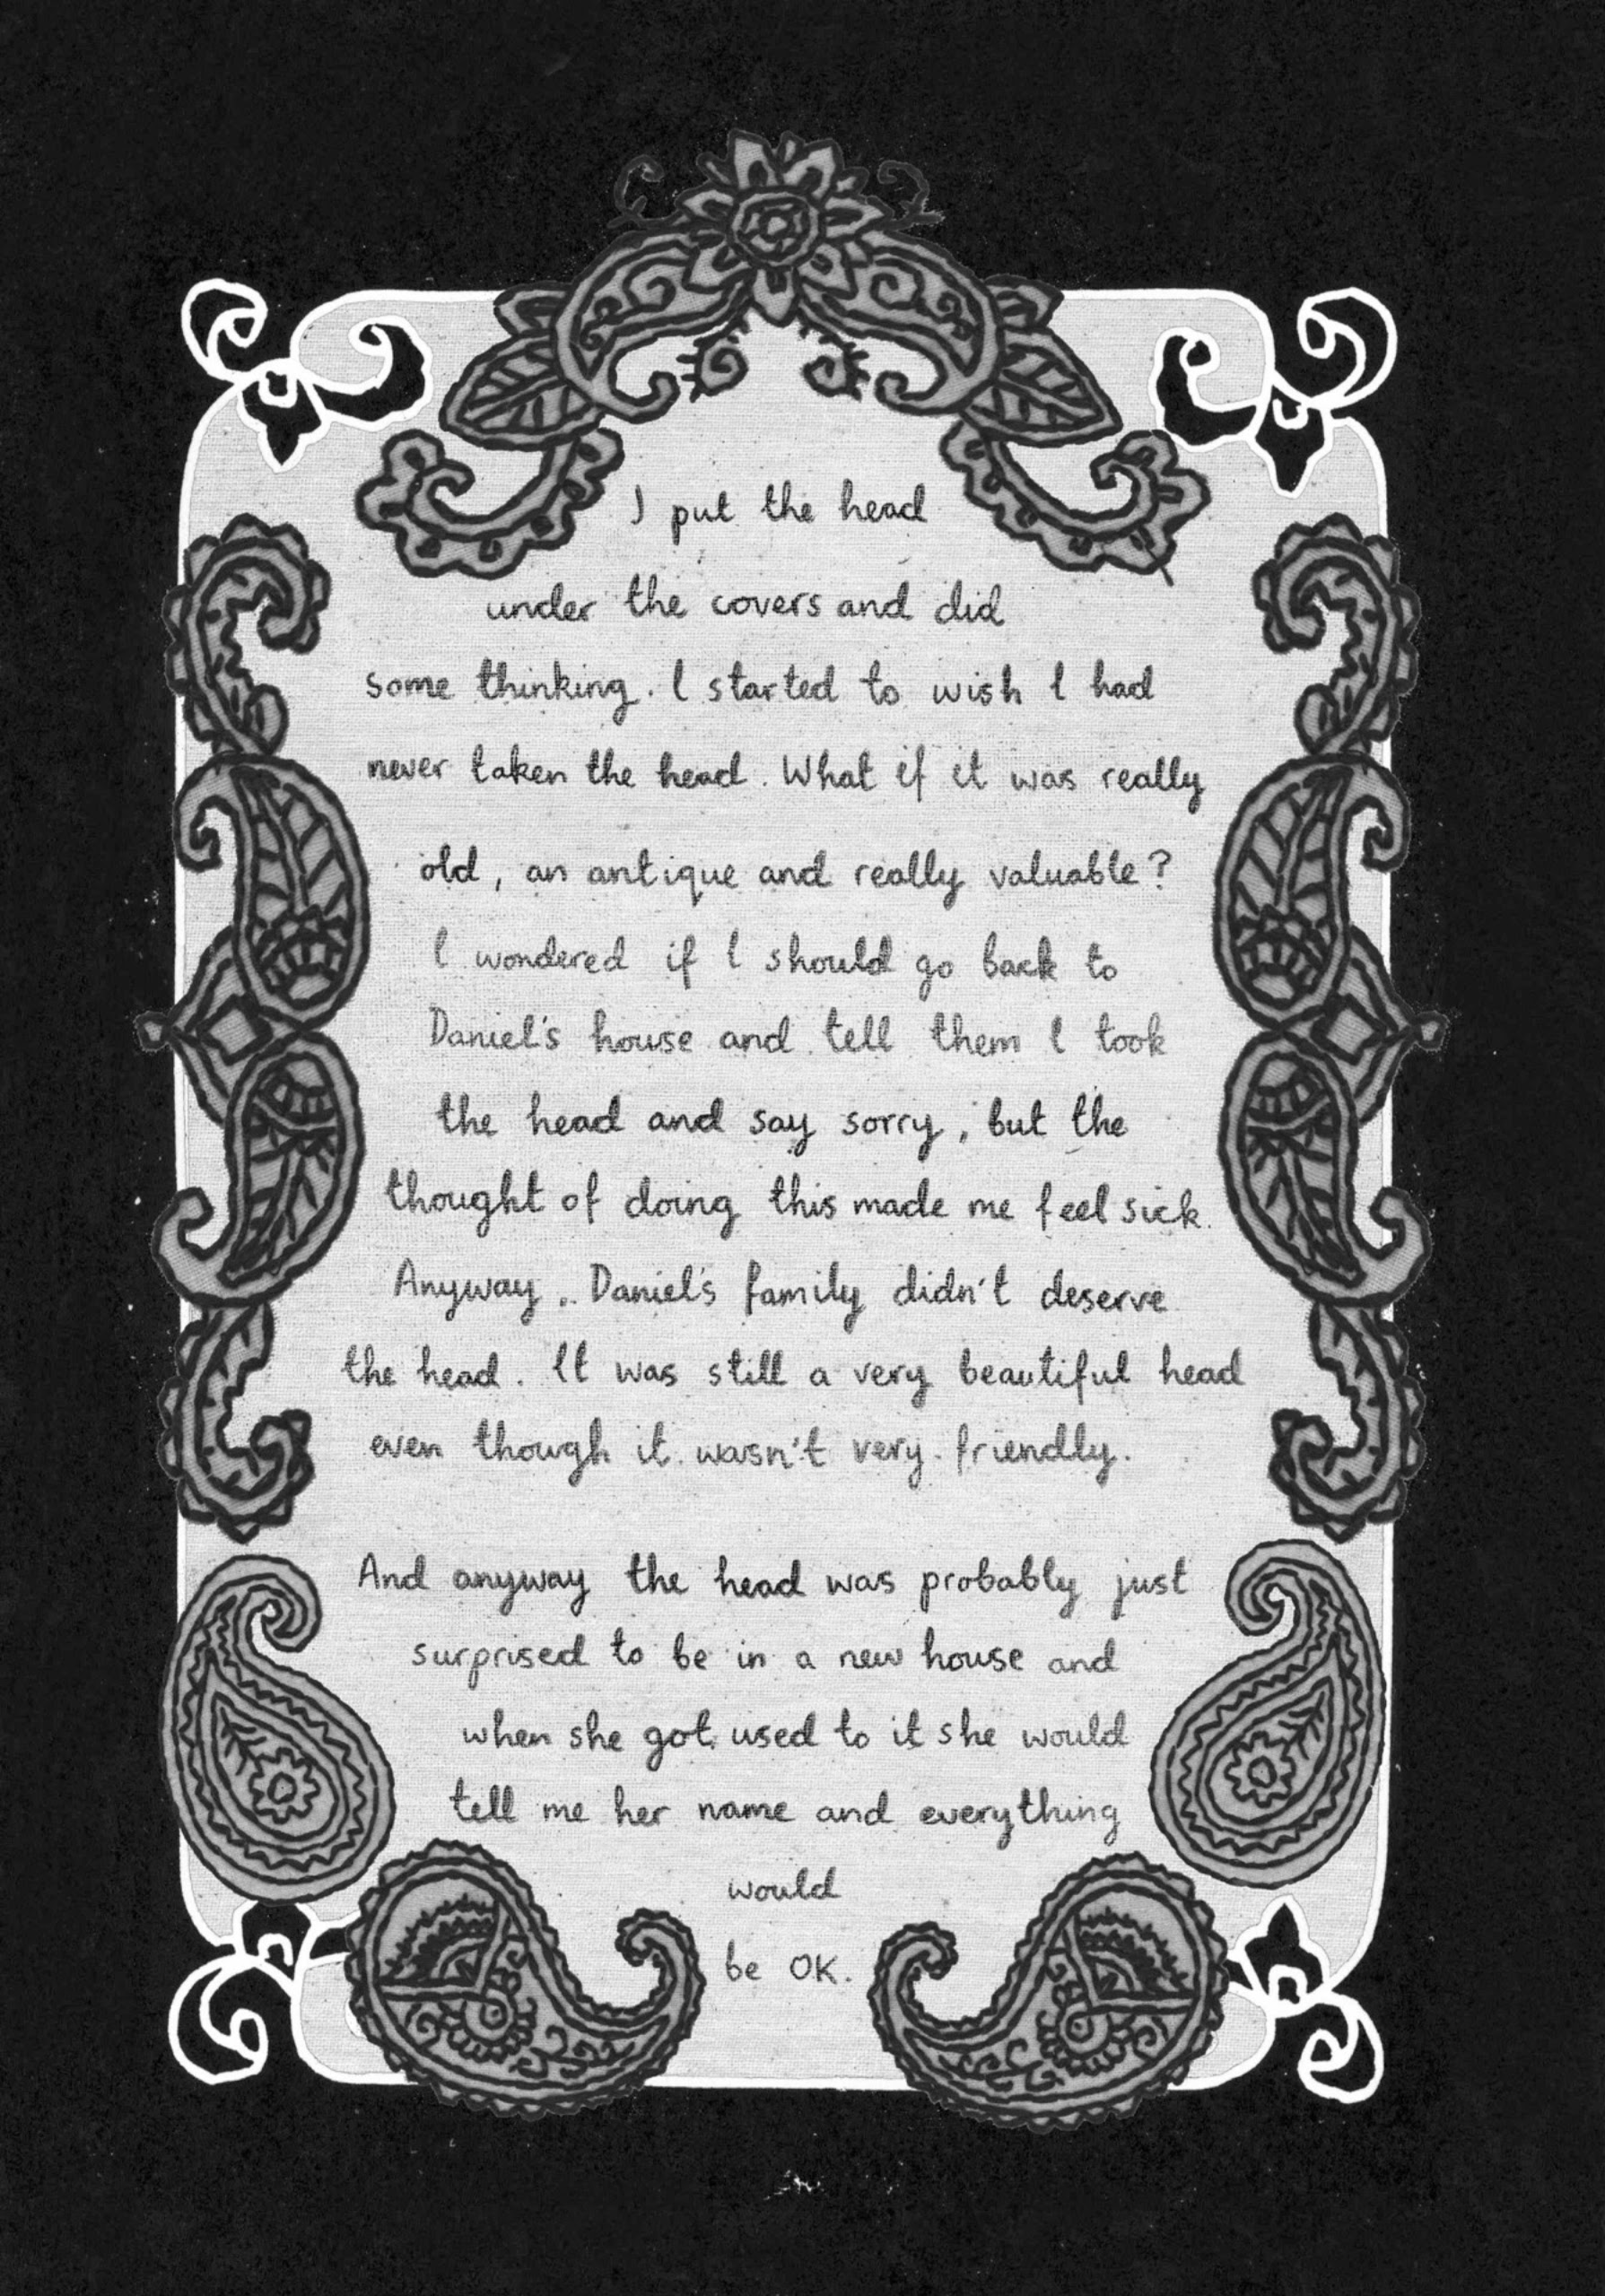 I put the head
under the covers and did
some thinking. I started to wish I had
never taken the head. What if it was really
old, an antique and really valuable?
I wondered if I should go back to
Daniel's house and tell them I took
the head and say sorry, but the
thought of doing this made me feel sick.
Anyway, Daniel's family didn't deserve
the head. It was still a very beautiful head
even though it wasn't very friendly.
And anyway the head was probably just
surprised to be in a new house and
when she got used to it she would
tell me her name and everything
would
be OK.